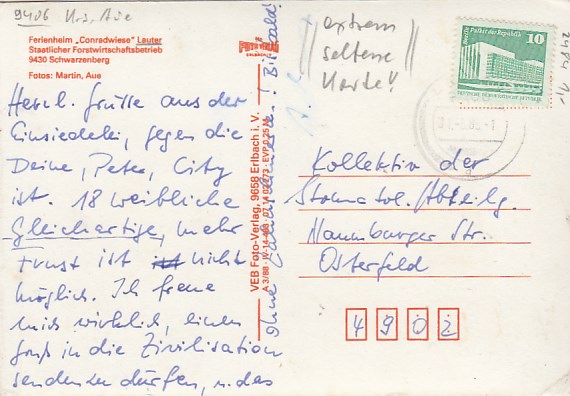 9406 Krs. Aue
Ferienheim „Conradwiese" Lauter
Staatlicher Forstwirtschaftsbetrieb
9430 Schwarzenberg
Fotos: Martin, Aue
FOTO-VERLAG
ERLBACH
extrem
seltene
Karte!
10
Berlin, Palast der Republik
Herzl. Grüße aus der
Einsiedelei, gegen die
Deine, Peter, City
ist. 18 weibliche
Gleichartige, mehr
Frust ist nicht
möglich. Ich freue
mich wirklich, einen
Gruß in die Zivilisation
senden zu dürfen, u. das
ohne
! Bis bald!
VEB Foto-Verlag, 9658 Erlbach i. V.
Kollektiv der
Stomatol. Abteilg.
Naumburger Str.
Osterfeld
4902